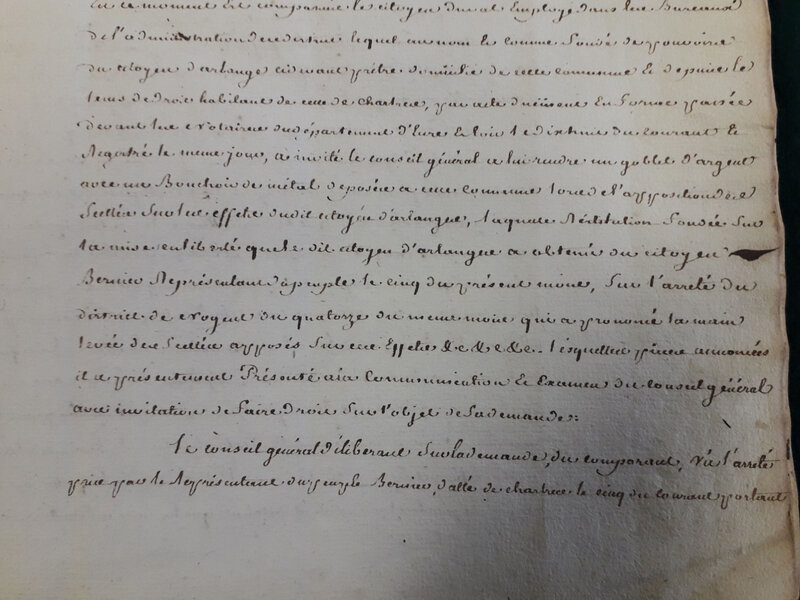 En ce moment est comparu le citoyen duval Employé dans les Bureaux
de l'administration du district lequel au nom et comme fondé de pouvoirs
du citoyen d'arlange cidevant prêtre domicilié de cette commune Et depuis le
tems de droit habitant de celle de chartres, par acte duement En forme passée
devant les notaires du département d'Eure Et Loir le dixhuit du courant Et
Registré le meme jour, a invité le conseil général a lui rendre un goblet d'argent
avec un Bouchoir de métal déposés a cette commune lors de l'apposition des
Scellés Sur les effets dudit citoyen d'arlangue, laquelle Réstitution fondée Sur
la mise en liberté que le dit citoyen d'arlangue a obtenu du citoyen
Bernier Représentant du peuple le cinq du présent mois, Sur l'arreté du
district de nogent du quatorze du meme mois qui a prononcé la main
levée des Scellés apposés Sur ces Effets &c &c &c. lesquelles pieces annoncées
il a présentement Présenté a la Communication Et Examen du Conseil général
avec invitation de faire droit Sur l'objet de Sa demande:
le conseil général déliberant Sur la demande, du comparant, Vû l'arreté
pris par le Représentant du peuple Bernier, datté de chartres le cinq du courant portant